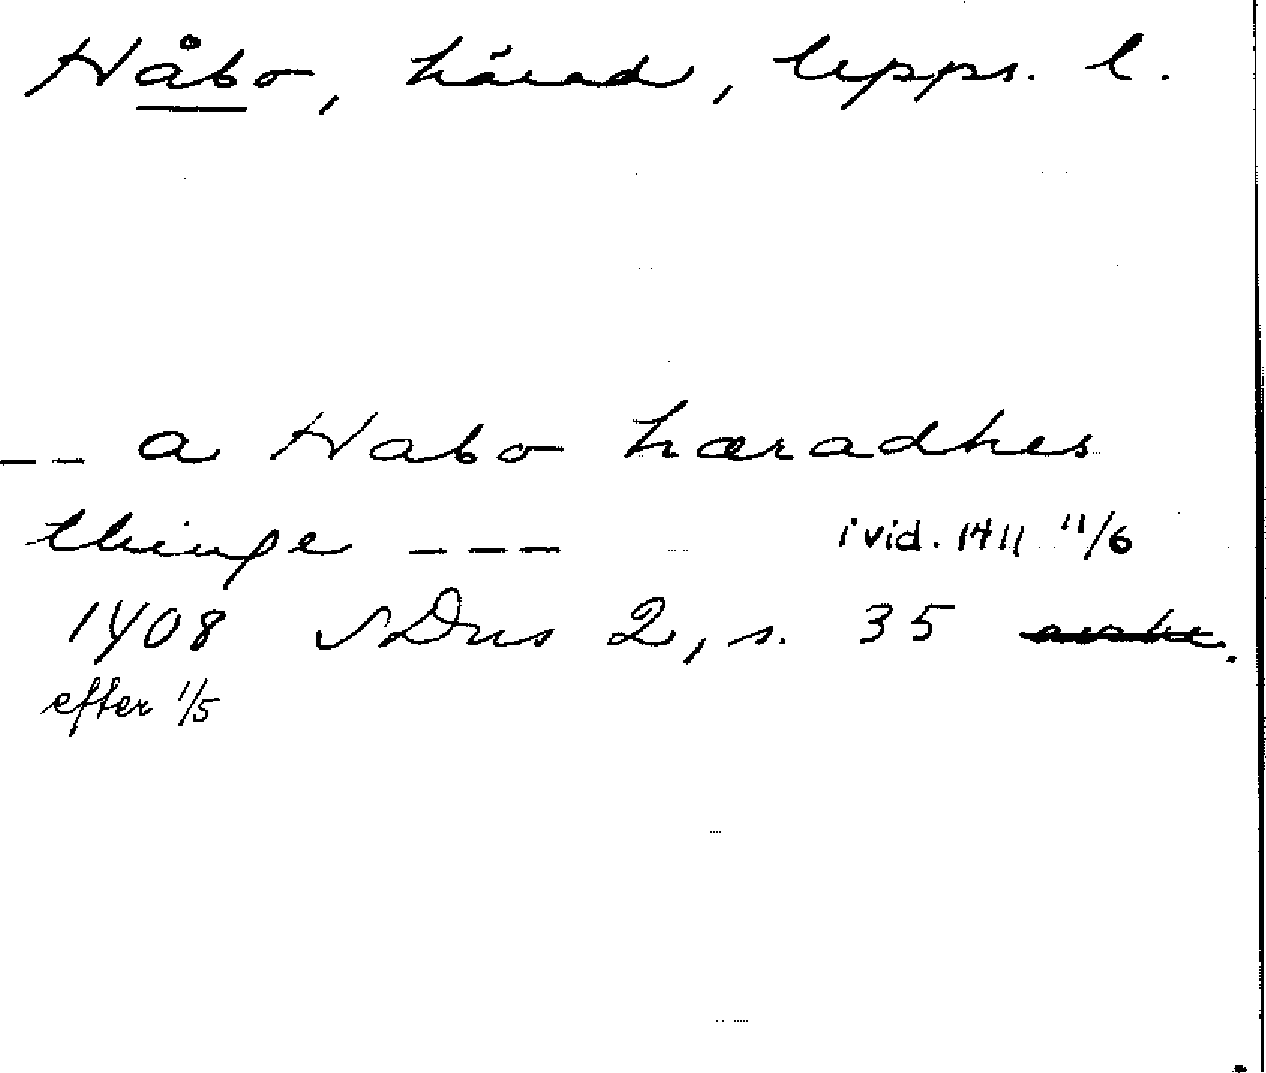 Håbo, härad, Upps. l.
-- a Habo hæradhes
thinge --- i vid. 1411 11/6
1408 SDns 2, s. 35 avskr.
efter 1/5